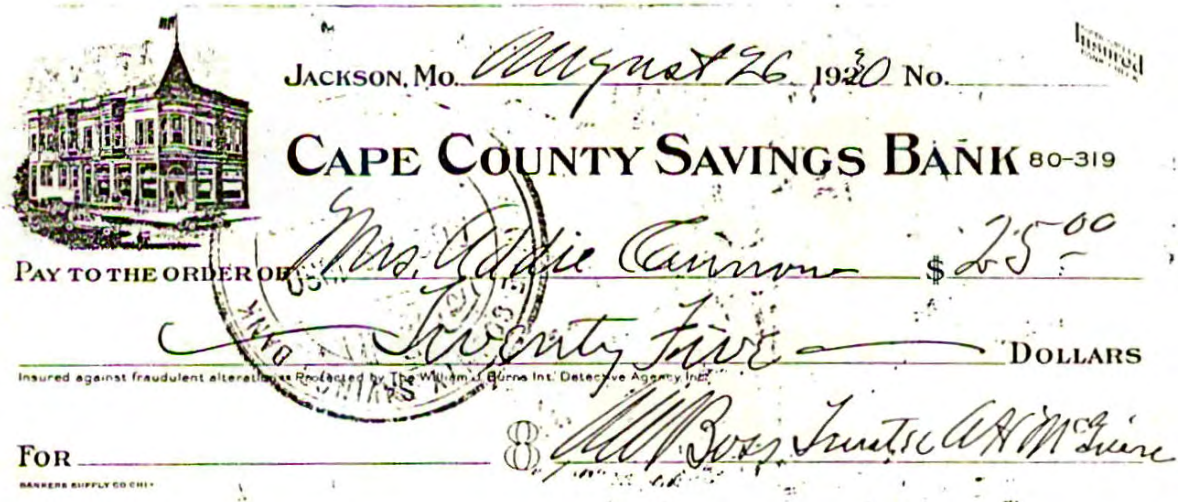 Insured
JACKSON, MO. August 26 1930 No.
CAPE COUNTY SAVINGS BANK 80-319
PAY TO THE ORDER OF Mrs. Addie Cannon $ 25.00
Twenty Five DOLLARS
Insured against fraudulent alteration Protected by The William J. Burns Int. Detective Agency Inc.
SAVINGS BANK
FOR
Boss Trustee A H McGuire
BANKERS SUPPLY CO CHI